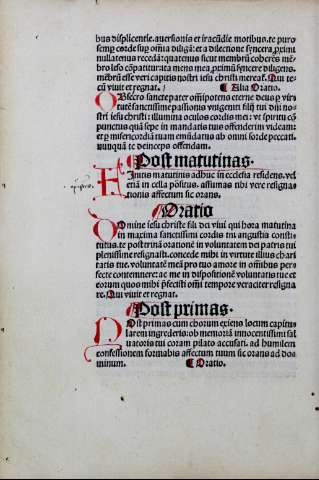 bus displicentie. auersionis et iracūdie motibus. te puro
semp corde sup oīnia diligā: et a dilectione syncera, primi
nullatenus recedā: quatenus sicut membrū choeres mē-
bro leso cōpatiturata mens mea, primū syncere diligens.
mēbrū esse veri capitis nostri iesu christi merear. Qui te-
cū viuit et regnat. Alia Oratio.
Obsecro sancte pater oīnipotens eterne deus p vir-
tutē sanctissime passionis vnigeniti filij tui dn̄i no-
stri iesu christi: illumina oculos cordis mei: vt spiritu cō-
punctus quā sepe in mandatis tuis offenderim videam:
et p misericordiā tuam emūdatus ab omni sorde peccati.
nunquā te deinceps offendam.
Post matutinas.
Finitis matutinis adhuc in ecclesia residens. vel
etiā in cella positus. assumas tibi vere resigna-
tionis affectum sic orans.
Oratio
Domine iesu christe fili dei viui qui hora matutina
in maxima sanctissimi cordis tui angustia consti-
tutus. te post trinā orationē in voluntatem dei patris tui
plenissime resignasti. concede mihi in virtute illius chari
tatis tue. voluntatē meā pro tuo amore in omnibus per-
fecte contemnere: ac me in dispositionē voluntatis tue et
eorum quos mihi pfecisti oīni tempore veraciter resigna-
re. Qui viuit et regnat.
Post primas.
Post primas cum chorum exiens locum capitu-
larem ingrederis: ob memoriā innocentissimi sal-
uatoris tui coram pilato accusati. ad humilem
confessionem formabis affectum tuum sic orans ad do-
minum. Oratio.